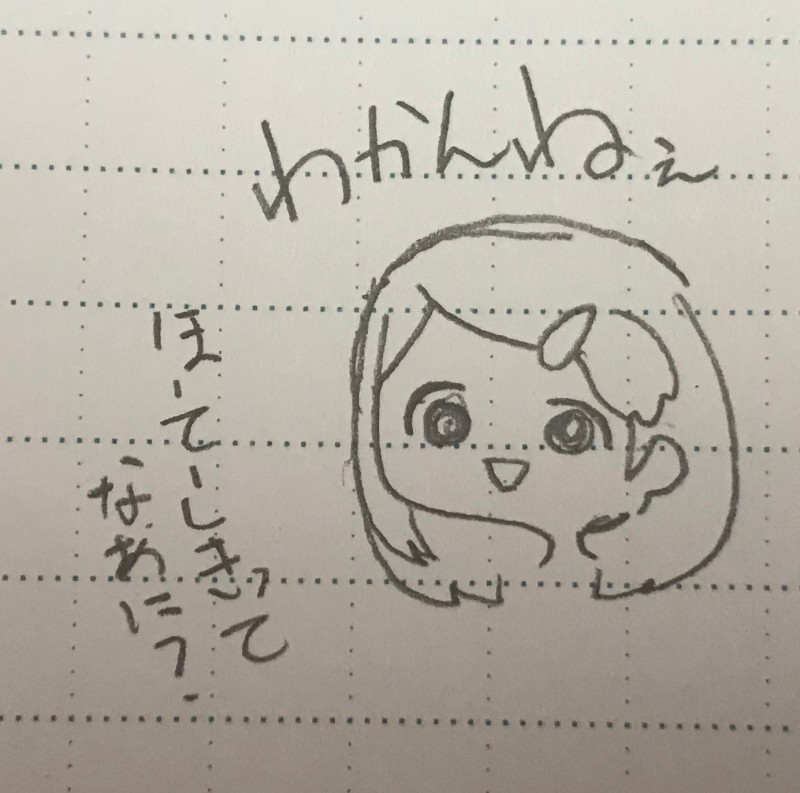 わかんねぇ
ほーてーしきって
なあに?